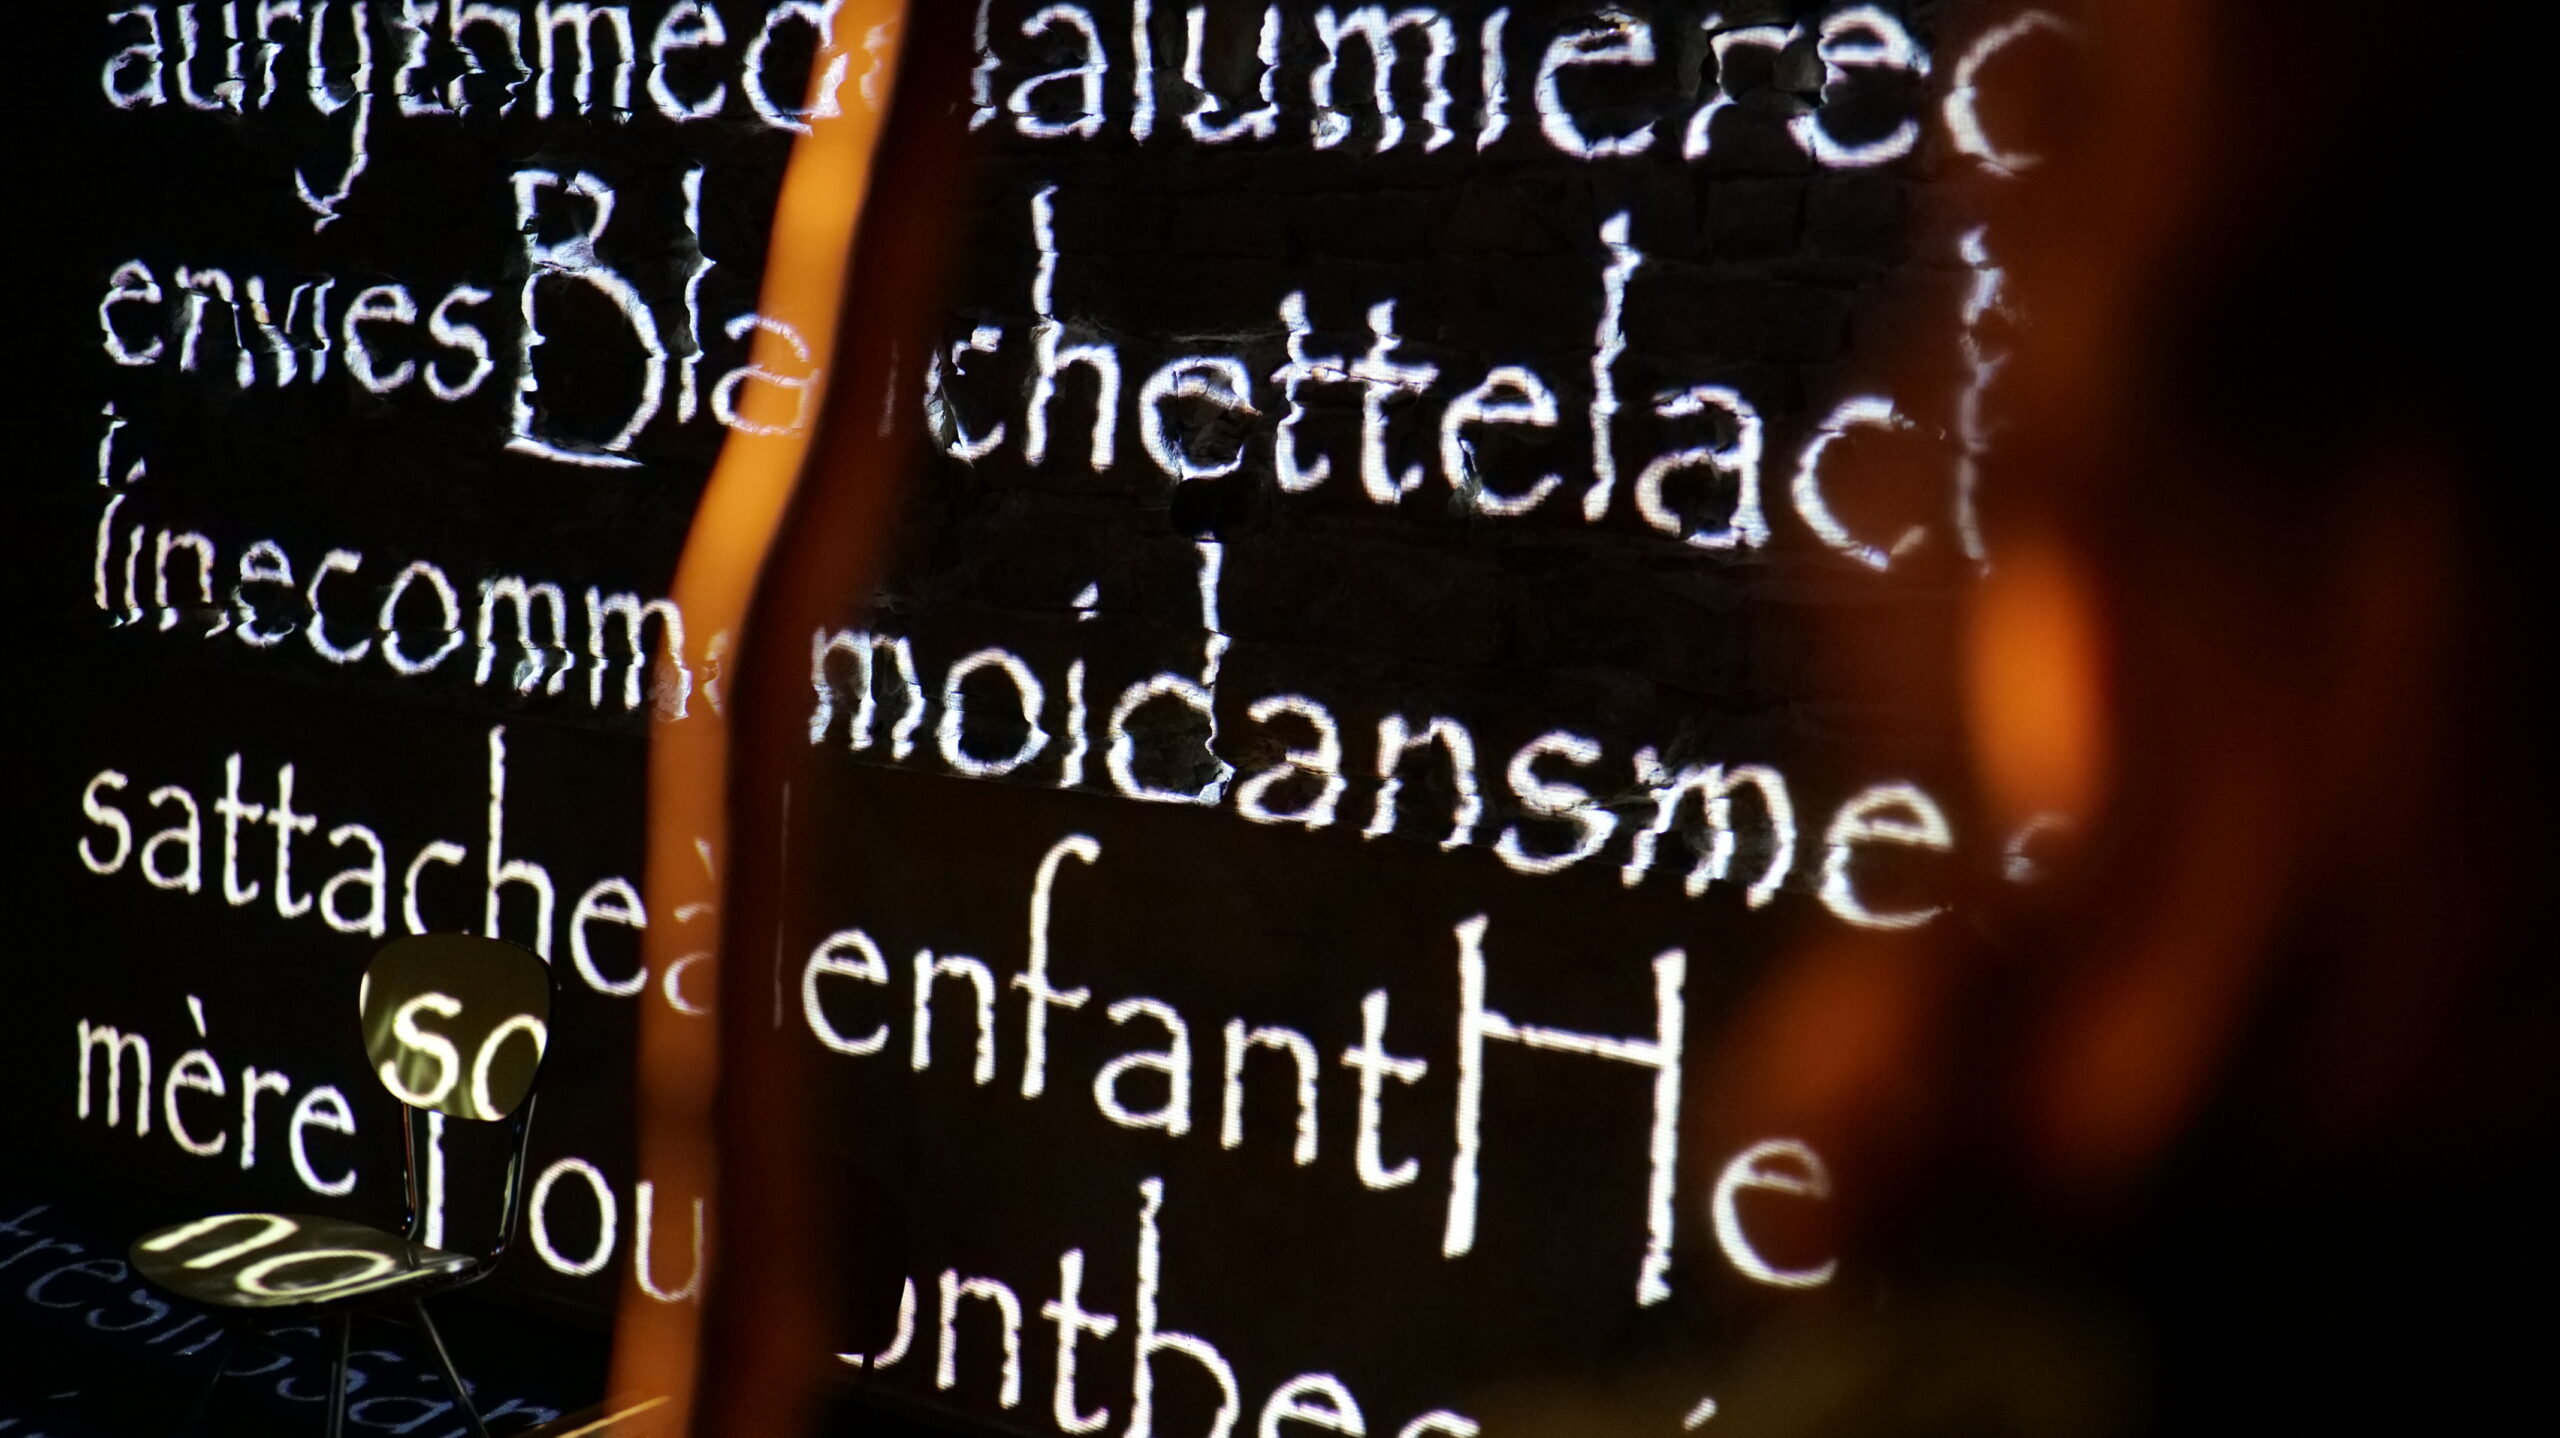 aurythmed lalumièrec
enviesBla chettelacl
linecomme moidansme
sattacheà enfantHe
mère so Tou onthes
no
treslissan